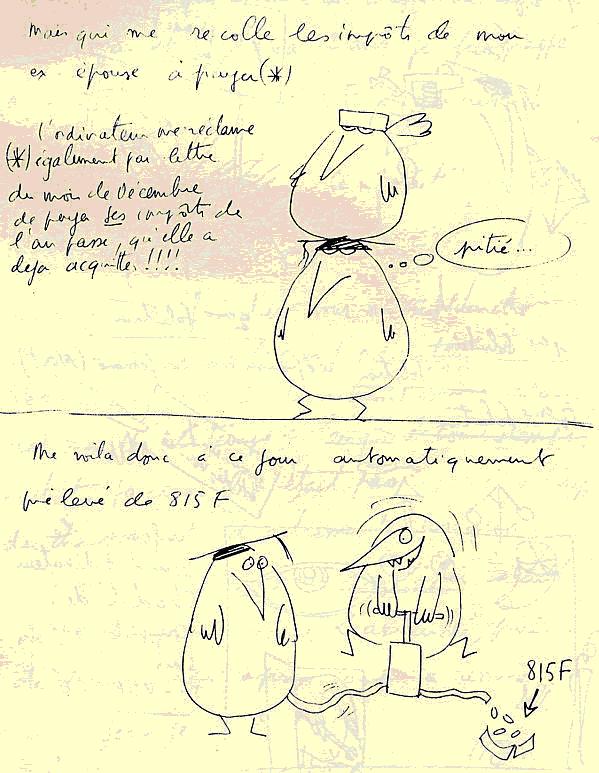 Mais qui me recolle les impôts de mon
ex épouse à payer (*)
l'ordinateur me réclame
(*) également par lettre
du mois de Décembre
de payer ses impôts de
l'an passé, qu'elle a
déja acquittés !!!!
pitié...
Me voila donc à ce jour automatiquement
prélevé de 815 F
815 F